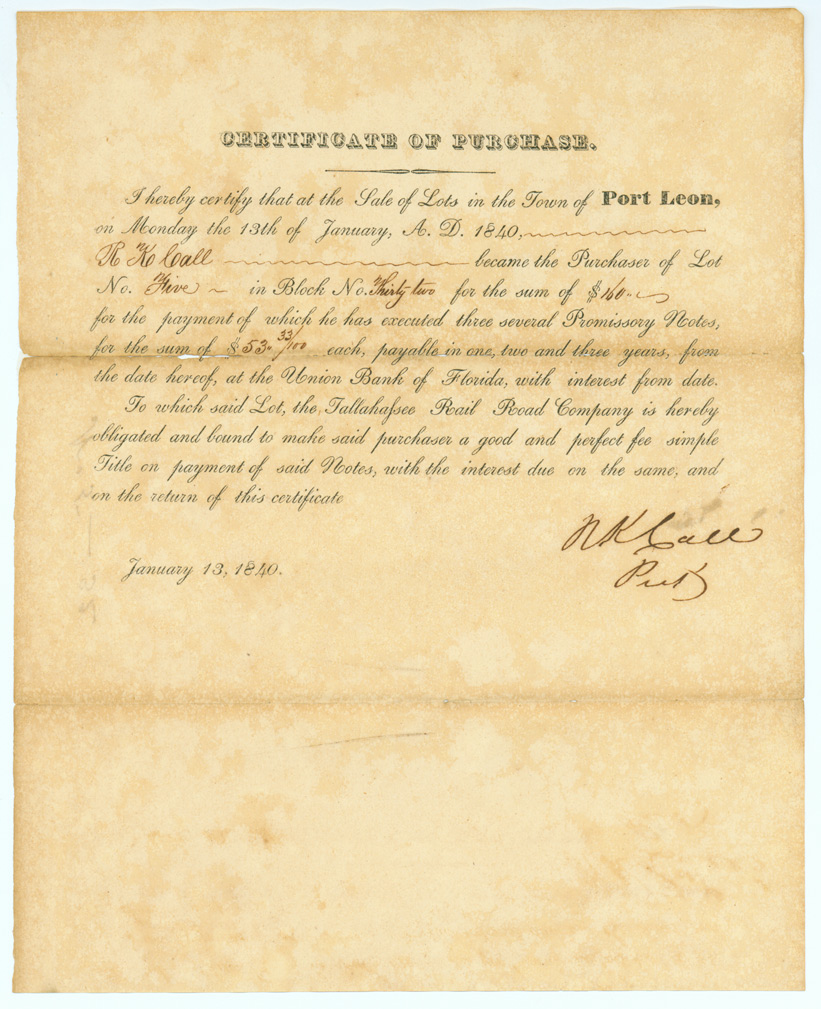 CERTIFICATE OF PURCHASE.
I hereby certify that at the Sale of Lots in the Town of Port Leon,
on Monday the 13th of January, A. D. 1840,
R K Call became the Purchaser of Lot
No. Five in Block No. Thirty two for the sum of $160
for the payment of which he has executed three several Promissory Notes,
for the sum of $53 33/100 each, payable in one, two and three years, from
the date hereof, at the Union Bank of Florida, with interest from date.
To which said Lot, the Tallahaſsee Rail Road Company is hereby
obligated and bound to make said purchaser a good and perfect fee simple
Title on payment of said Notes, with the interest due on the same, and
on the return of this certificate
R K Call
Prest
January 13, 1840.